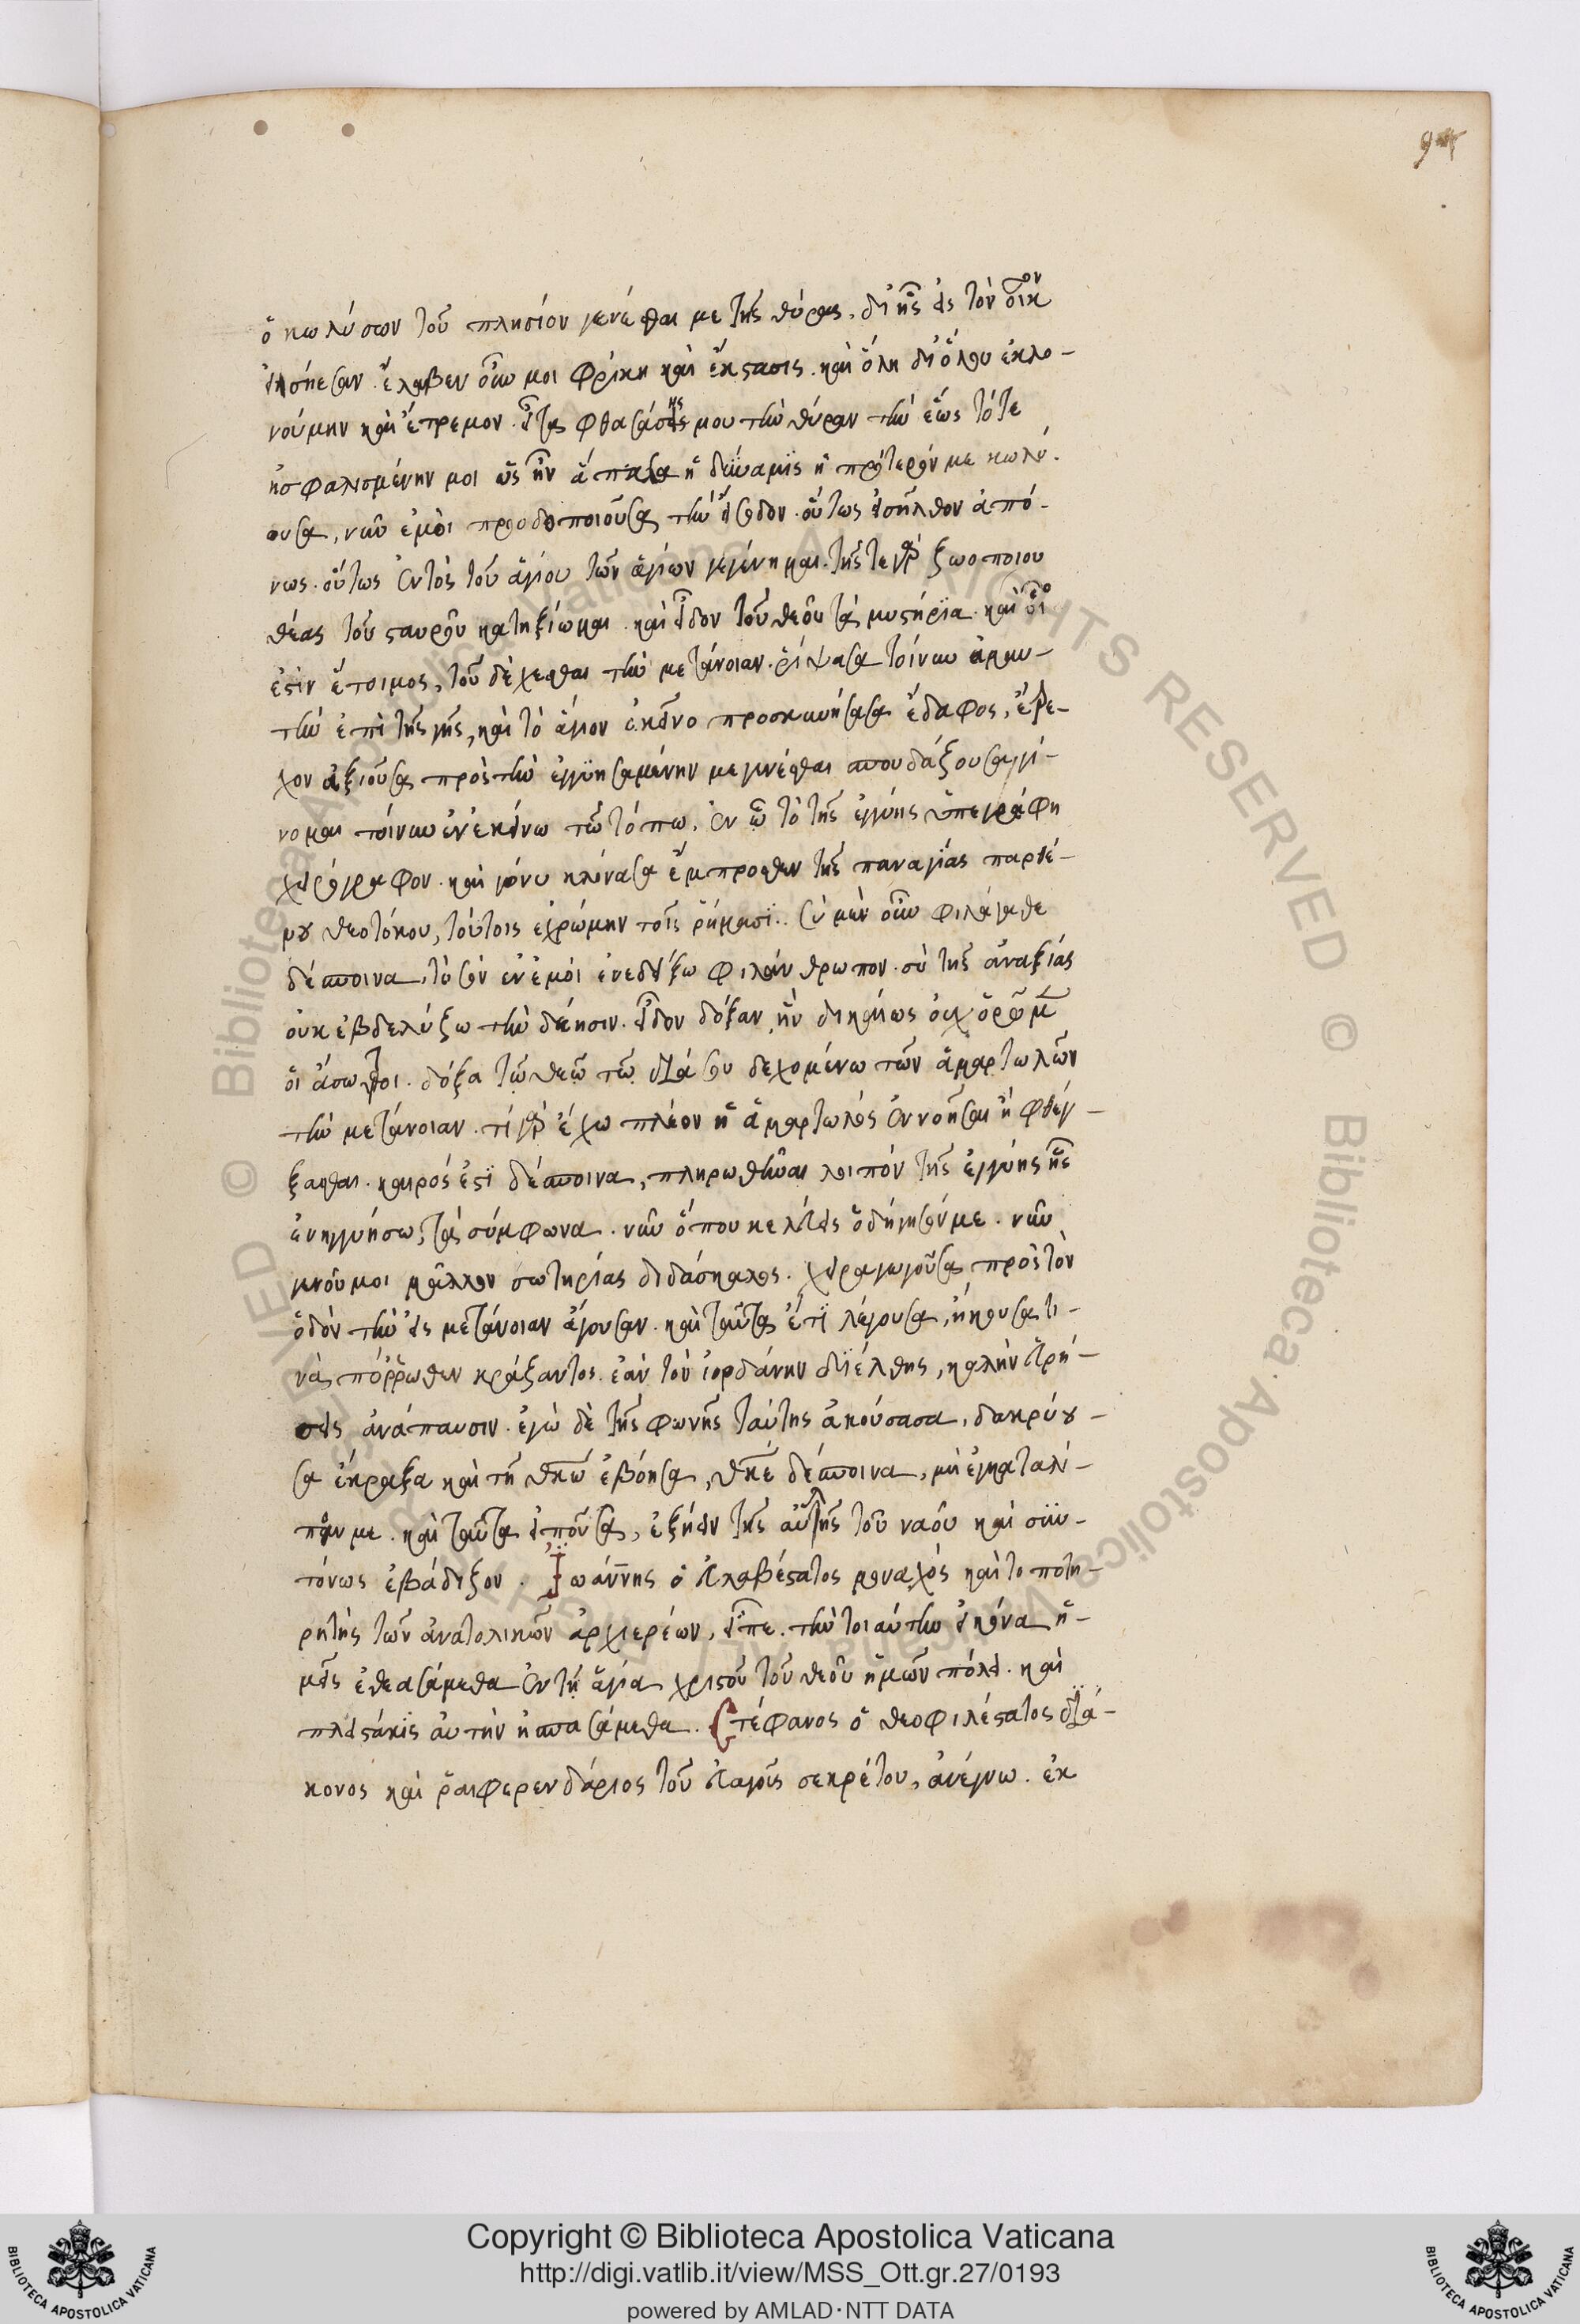 ὁ κωλύσων τοῦ πλησίον γενέσθαι με τῆς θύρας, δι' ἧς εἰς τὸν οἶκον
εἰσήεσαν. ἔλαβεν οὖν μοι φρίκη καὶ ἔκστασις. καὶ ὅλη δι' ὅλου ἐκλο-
νούμην καὶ ἔτρεμον. εἶτα φθασάσης μου τὴν θύραν τὴν ἕως τότε
ἠσφαλισμένην μοι ὡς ἦν ἅπασα ἡ δύναμις ἡ πρότερόν με κωλύ-
ουσα, νῦν ἐμοὶ προοδοποιοῦσα τὴν εἴσοδον. οὕτως εἰσῆλθον ἀπό-
νως. οὕτως ἐντὸς τοῦ ἁγίου τῶν ἁγίων γεγένημαι. τῆς τε γὰρ ζωοποιου
θέας τοῦ σταυροῦ κατηξίωμαι. καὶ εἶδον τοῦ θεοῦ τὰ μυστήρια. καὶ οἷό
ἐστιν ἕτοιμος, τοῦ δέχεσθαι τὴν μετάνοιαν. ῥίψασα τοίνυν ἐμαυ-
τὴν ἐπὶ τῆς γῆς, καὶ τὸ ἅγιον ἐκεῖνο προσκυνήσασα ἔδαφος, ἔτρε-
χον ἀξιοῦσα πρὸς τὴν ἐγγυησαμένην με γενέσθαι σπουδάζουσα. γί-
νομαι τοίνυν ἐν ἐκείνω τῶ τόπω. ἐν ὧ τὸ τῆς ἐγγύης ὑπεγράφη
χειρόγραφον. καὶ γόνυ κλίνασα ἔμπροσθεν τῆς παναγίας παρθέ-
νου θεοτόκου, τούτοις ἐχρώμην τοῖς ῥήμασι.. σὺ μὲν οὖν φιλάγαθε
δέσποινα, τὸ σὸν ἐν ἐμοὶ ἐνεδείξω φιλάνθρωπον. σὺ τῆς ἀναξίας
οὐκ ἐβδελύξω τὴν δέησιν. εἶδον δόξαν, ἣν δικαίως οὐχ ὁρῶμεν
οἱ ἄσωτοι. δόξα τῶ θεῶ τῶ διὰ σου δεχομένω τῶν ἁμαρτωλῶν
τὴν μετάνοιαν. τί γὰρ ἔχω πλέον ἡ ἁμαρτωλὸς ἐννοῆσαι ἢ φθέγ-
ξασθαι. καιρός ἐστι δέσποινα, πληρωθῆναι λοιπόν τῆς ἐγγύης ἧς
ἐνηγγυήσω, τὰ σύμφωνα. νῦν ὅπου κελεύεις ὁδήγησόν με. νῦν
γενοῦ μοι μᾶλλον σωτηρίας διδάσκαλος. χειραγωγοῦσα πρὸς τὸν
ὁδὸν τὴν εἰς μετάνοιαν ἄγουσαν. καὶ ταῦτα ἔτι λέγουσα, ἤκουσα τι-
νὸς πόρρωθεν κράζοντος. ἐὰν τὸν ἰορδάνην διέλθης, καλὴν εὑρή-
σεις ἀνάπαυσιν. ἐγὼ δὲ τῆς φωνῆς ταύτης ἀκούσασα, δακρύου-
σα ἔκραξα καὶ τῆ θκω ἐβόησα, θκε δέσποινα, μὴ ἐγκαταλί-
πης με. καὶ ταῦτα εἰποῦσα, ἐξήειν τῆς αὐλῆς τοῦ ναοῦ καὶ συν-
τόνως ἐβάδιζον. Ἰωάννης ὁ εὐλαβέστατος μοναχὸς καὶ τοποτη-
ρητὴς τῶν ἀνατολικῶν ἀρχιερέων, εἶπε. τὴν τοιαύτην εἰκόνα ἡ-
μεῖς ἐθεασάμεθα ἐν τῆ ἁγία χριστοῦ τοῦ θεοῦ ἡμῶν πόλει. καὶ
πλειστάκις αὐτὴν ἠσπασάμεθα. Στέφανος ὁ θεοφιλέστατος διά-
κονος καὶ ῥαιφερενδάριος τοῦ εὐαγοῦς σεκρέτου, ἀνέγνω. ἐκ
Copyright © Biblioteca Apostolica Vaticana
http://digi.vatlib.it/view/MSS_Ott.gr.27/0193
powered by AMLAD·NTT DATA